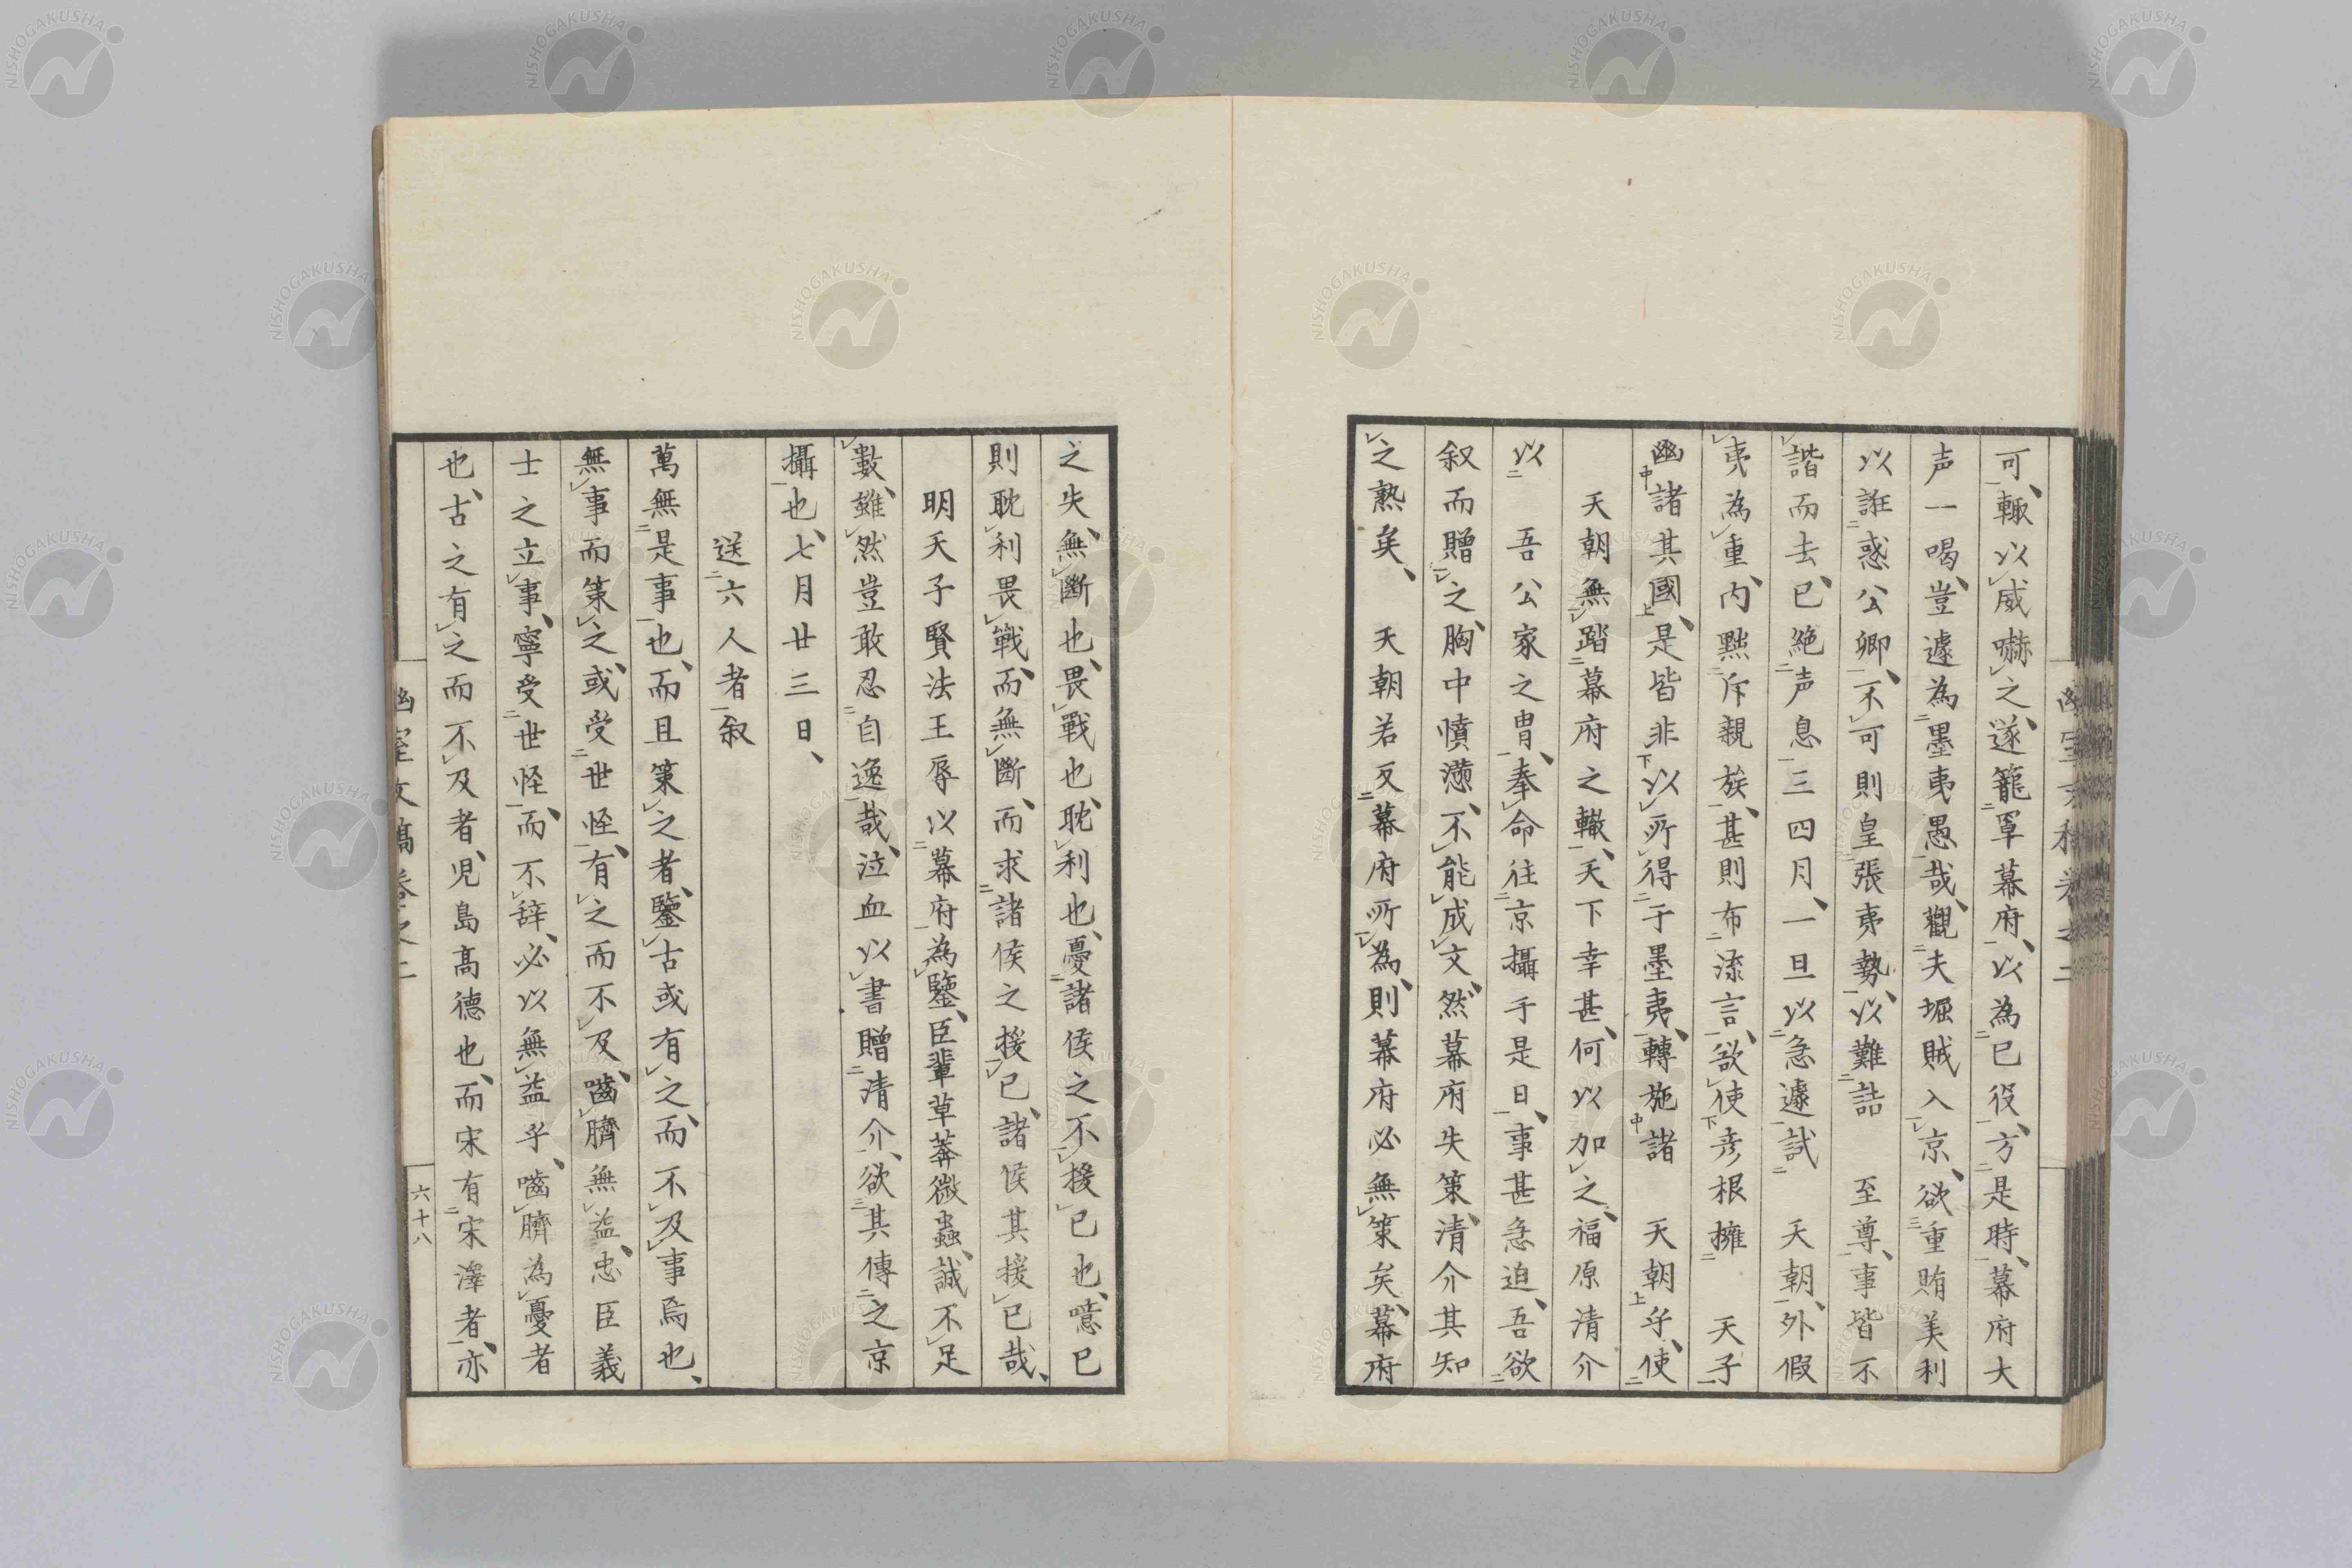 可、輙以威嚇之、遂籠罩幕府、以為已役、方是時、幕府大
声一喝、豈遽為墨夷愚哉、觀夫堀賊入京、欲重賄美利
以誑惑公卿、不可則皇張夷勢、以難詰　至尊、事皆不
諧而去、已絶声息三四月、一旦以急遽試　天朝、外假
夷為重、内黙斥親族、甚則布流言、欲使彦根擁　天子
幽諸其國、是皆非以所得于墨夷、轉施諸　天朝乎、使
天朝無踏幕府之轍、天下幸甚、何以加之、福原清介
以　吾公家之冑、奉命往京攝于是日、事甚急迫、吾欲
叙而贈之、胸中憤懣、不能成文、然幕府失策、清介其知
之熟矣、　天朝若反幕府所為、則幕府必無策矣、幕府
之失、無斷也、畏戰也、耽利也、憂諸侯之不援已也、噫已
則耽利畏戰、而無斷、而求諸侯之援已、諸侯其援已哉、
明天子賢法王辱以幕府為鑒、臣輩草莽微蟲、誠不足
數、雖然豈敢忍自逸哉、泣血以書贈清介、欲其傳之京
攝也、七月廿三日、
送六人者叙
萬無是事也、而且策之者、鑒古或有之、而不及事焉也、
無事而策之、或受世怪、有之而不及、噬臍無益、忠臣義
士之立事、寧受世怪、而不辞、必以無益乎、噬臍為憂者
也、古之有之而不及者、児島高德也、而宋有宋澤者、亦
幽室文稿卷之二
六十八